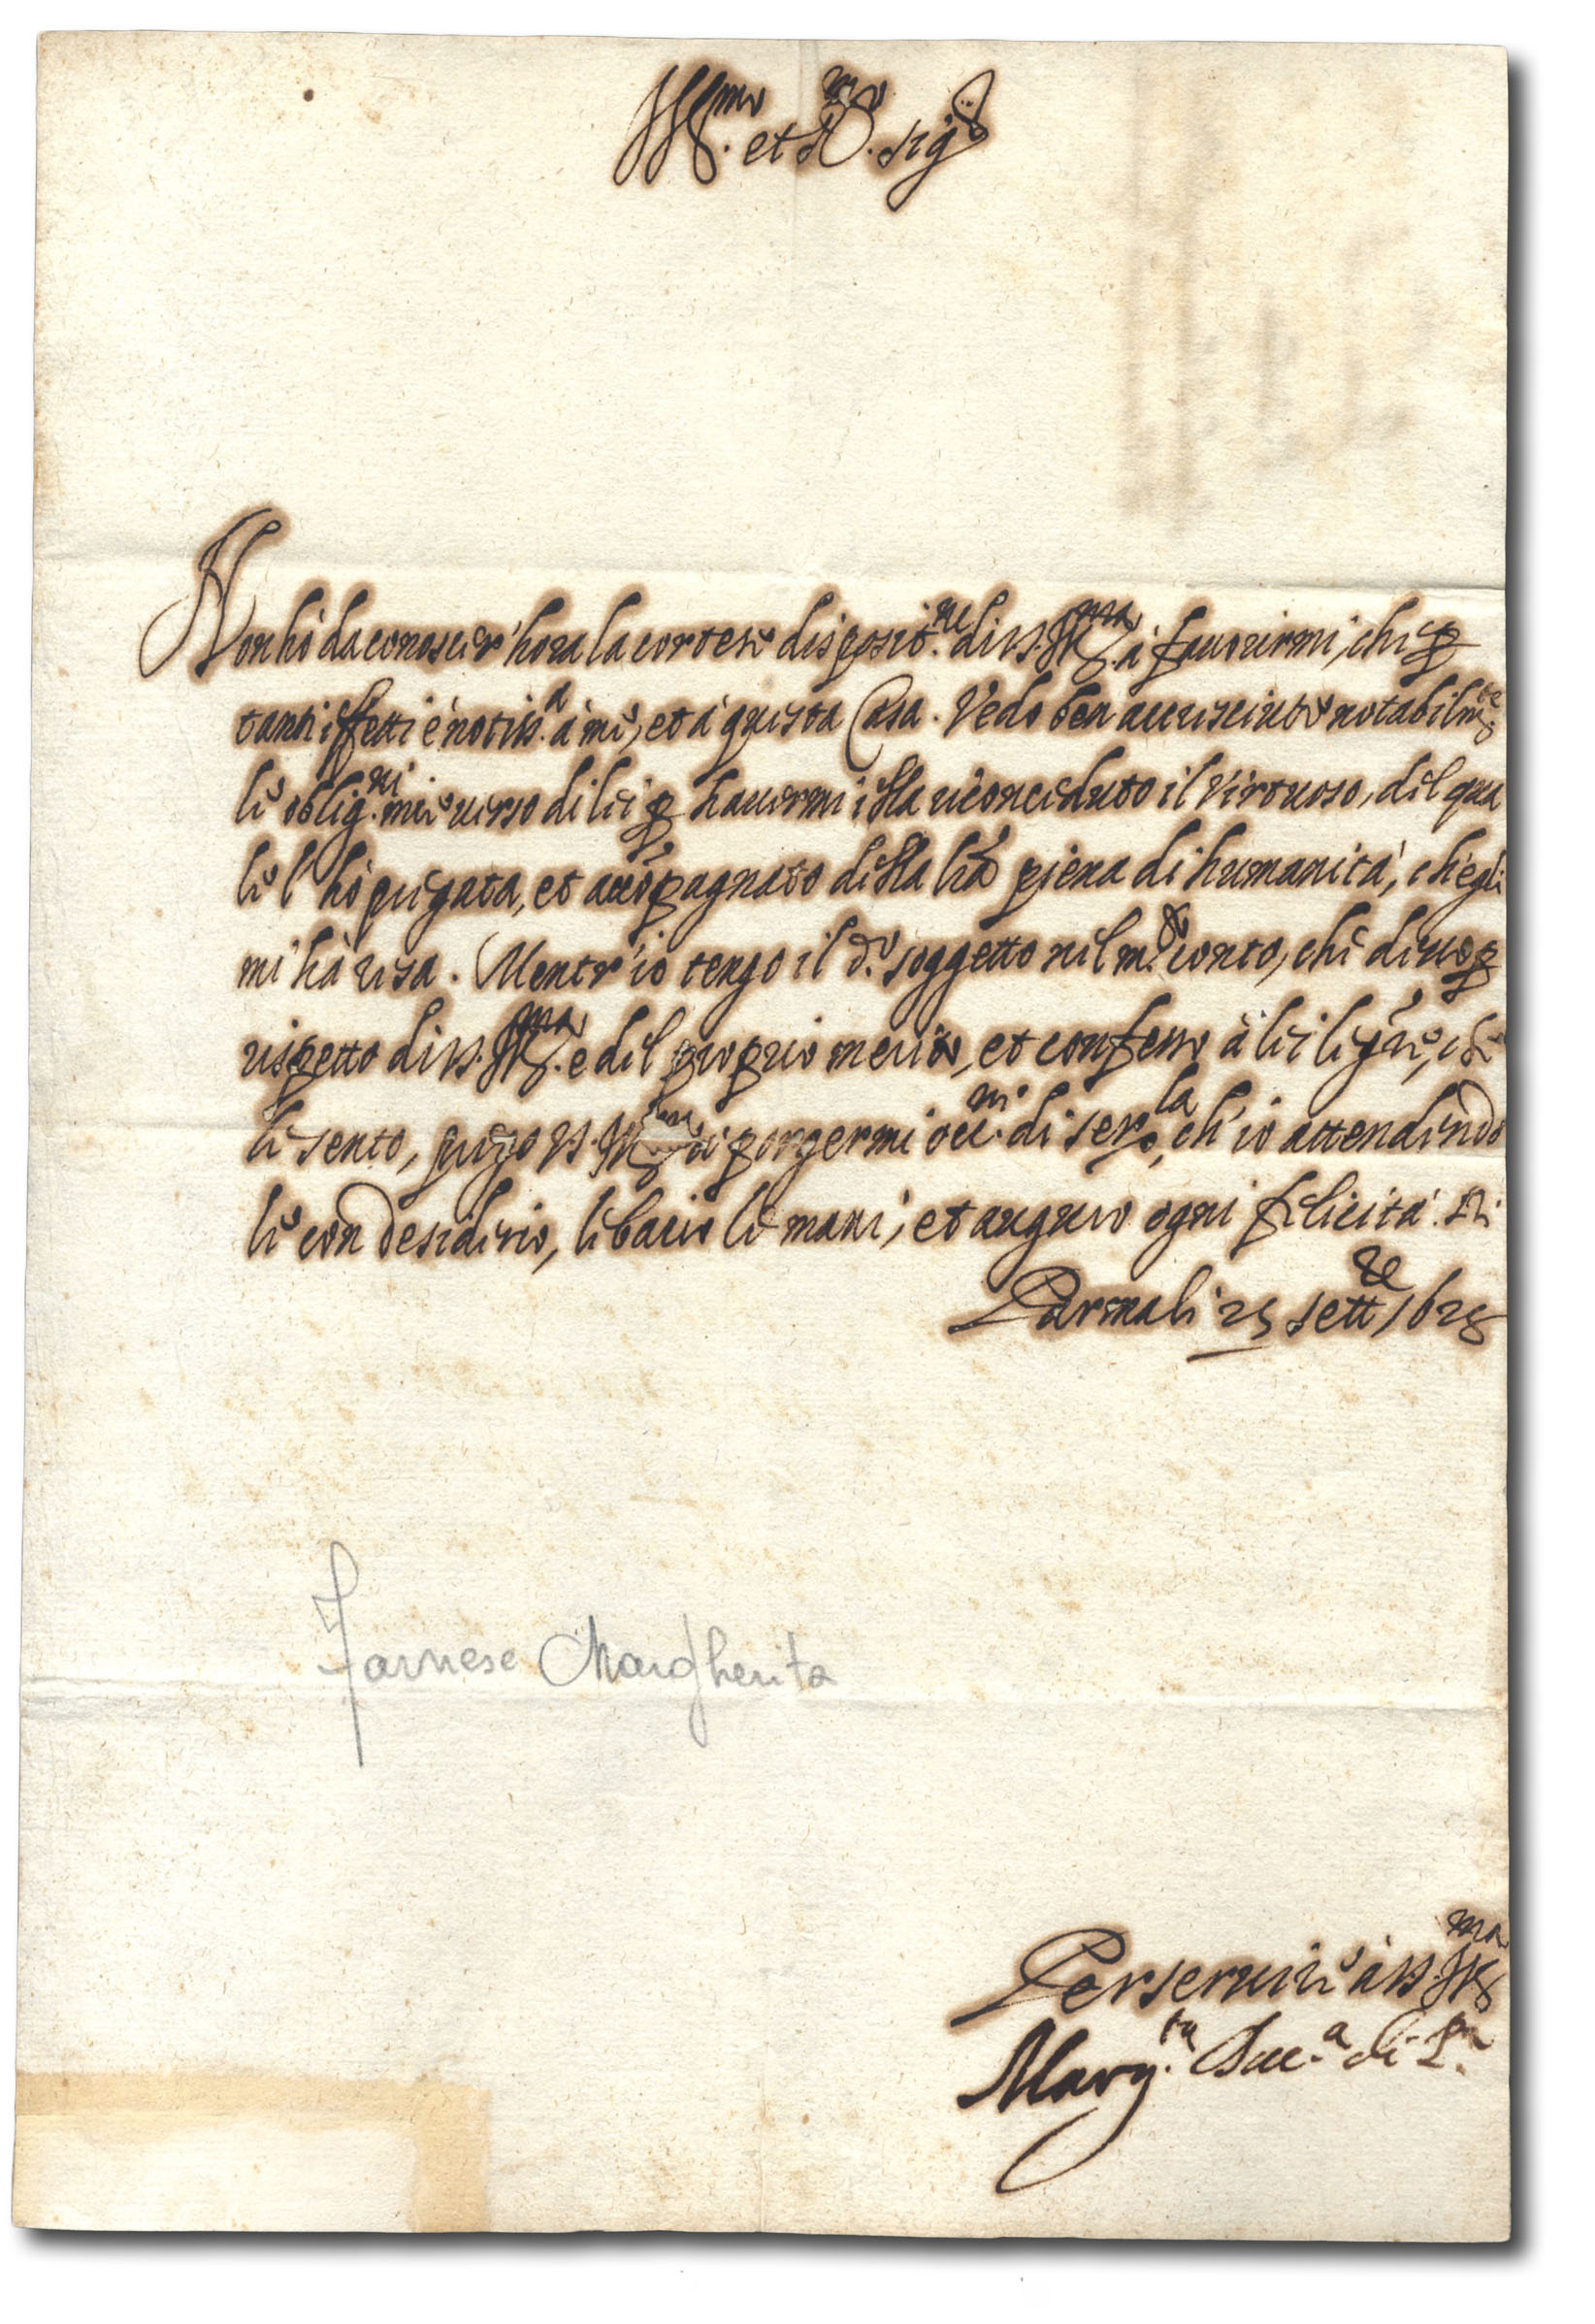 Ill.mo et R.mo sig.r
Non hò da conoscer' hora la cortese disposit.ne di V.S. Ill.ma à fauorirmi, che p
tanti effetti è notiss.a à me, et à questa Casa. Vedo ben accresciute notabilm.te
le oblig.ni mie uerso di lei p hauermi ella riconceduto il Virtuoso, del qua
le l' hò pregata, et accōpagnato della lrā piena di humanità, ch'egli
mi hà resa. Mentr'io tengo il d.o soggetto nel m.r conto, che deuo p
rispetto di V.S. Ill.ma e del proprio merito, et confesso à lei le gre, che
le sento, prego V.S. Ill.ma à porgermi occ.ni di ser.la, ch' io attendendo
le con desiderio, le bacio le mani, et auguro ogni felicità. Di
Parma li 25 sett.re 1628
Farnese Margherita
Per seruire à V.S. Ill.ma
Marg.ta Duc.a di P.a